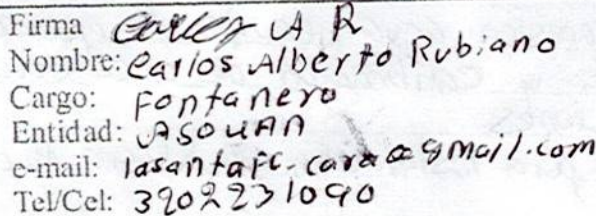 Firma Carlos A R
Nombre: Carlos Alberto Rubiano
Cargo: Fontanero
Entidad: ASOUAN
e-mail: lasantafc.cara@gmail.com
Tel/Cel: 3202231090